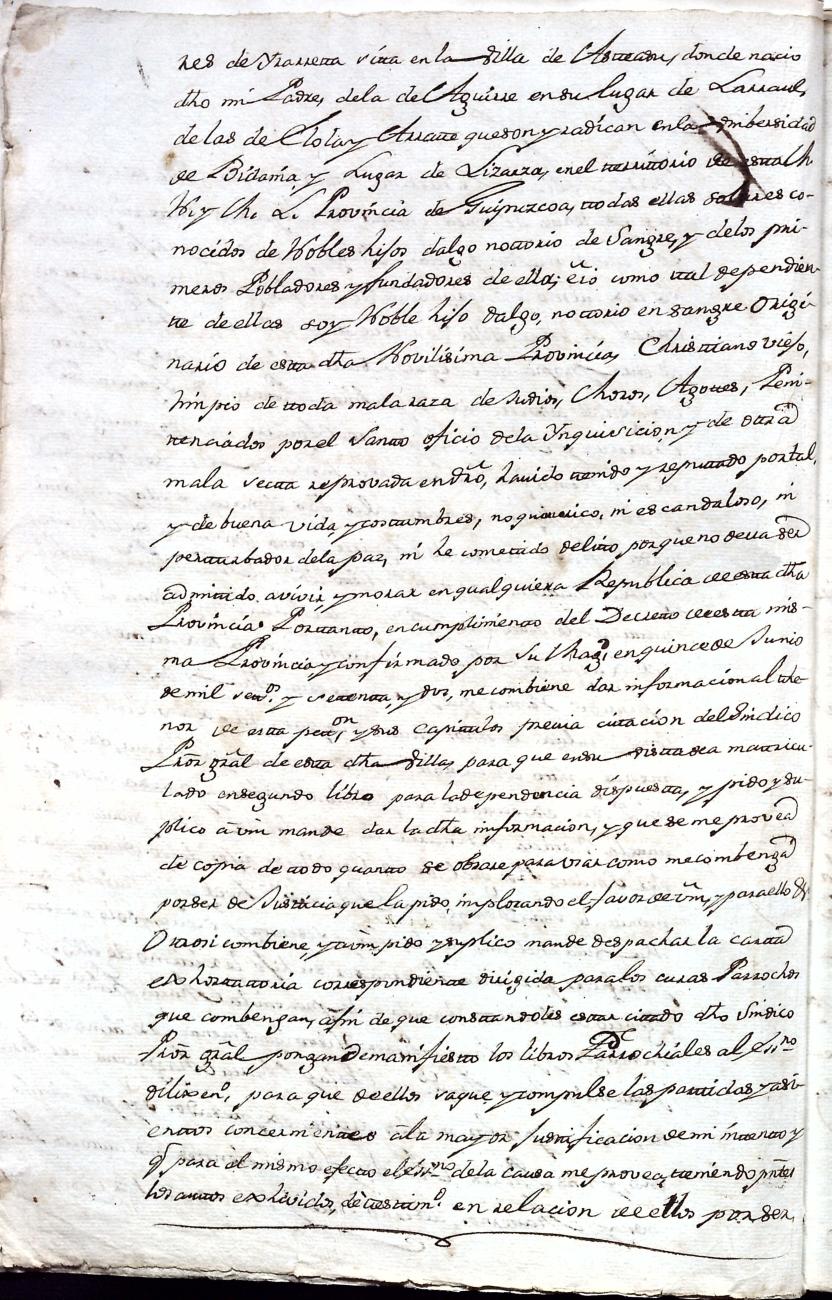 res de Yrarreta sita en la Villa de Asteasu, donde nacio
dho mi Padre, dela de Aguirre en su lugar de Larraul,
de las de Elola y Arrate que son y radican en la Vnibersidad
de Bidania, y Lugar de Lizarza, en el territorio de esta M.
N. y M. L. Provincia de Guipuzcoa, todas ellas solares co-
nocidos de Nobles hijos dalgo notorio de Sangre, y delos pri-
meros Pobladores y fundadores de ella, è io como tal dependien-
te de ellas soy Noble hijo dalgo, notorio en sangre Origi-
nario de esta dha Novilisima Provincia, Christiano viejo,
limpio de toda mala raza de Judios, Moros, Agotes, Peni-
tenciados por el Santo oficio dela Ynquisicion, y de otra
mala secta reprovada en dro, havido tenido y reputado por tal,
y de buena vida, y costumbres, no, ni escandaloso, ni
perturbador dela paz, ni he cometido delito por que no deva ser
admitido avivir, y morar en qualquiera Republica de esta dha
Provincia. Portanto, en cumplimiento del Decreto de esta mis-
ma Provincia y confirmado por Su Magd, en quince de Junio
de mil setos. y setenta, y dos, me combiene dar informacion al the-
nor de esta peton, y sus capitulos previa citacion del Sindico
Pror gral de esta dha Villa, para que en su vista sea matricu-
lado en segundo libro para la dependencia dispuesta, y pido y su-
plico à vm mande dar la dha informacion, y que se me provea
de copia de todo quanto se obrare para vsar como me combenga
por ser de Justicia que la pido, implorando el favor de vm, y para ello &
Otrosi combiene, y a vm pido y suplico mande despachar la carta
exhortatoria correspondiente dirigida para los curas Parrochos
que combengan, a fin de que constandoles estar citado dho Sindico
Pror gral pongan demanifiesto los libros Parrochiales al Essno
dilixeno, para que de ellos saque y compulse las partidas y asi-
entos concernientes àla mayor justificacion de mi intento y
q. para el mismo efecto el Essno dela causa me provea, teniendo pntes
los autos exsividos, de testimo. en relacion de ellos por ser